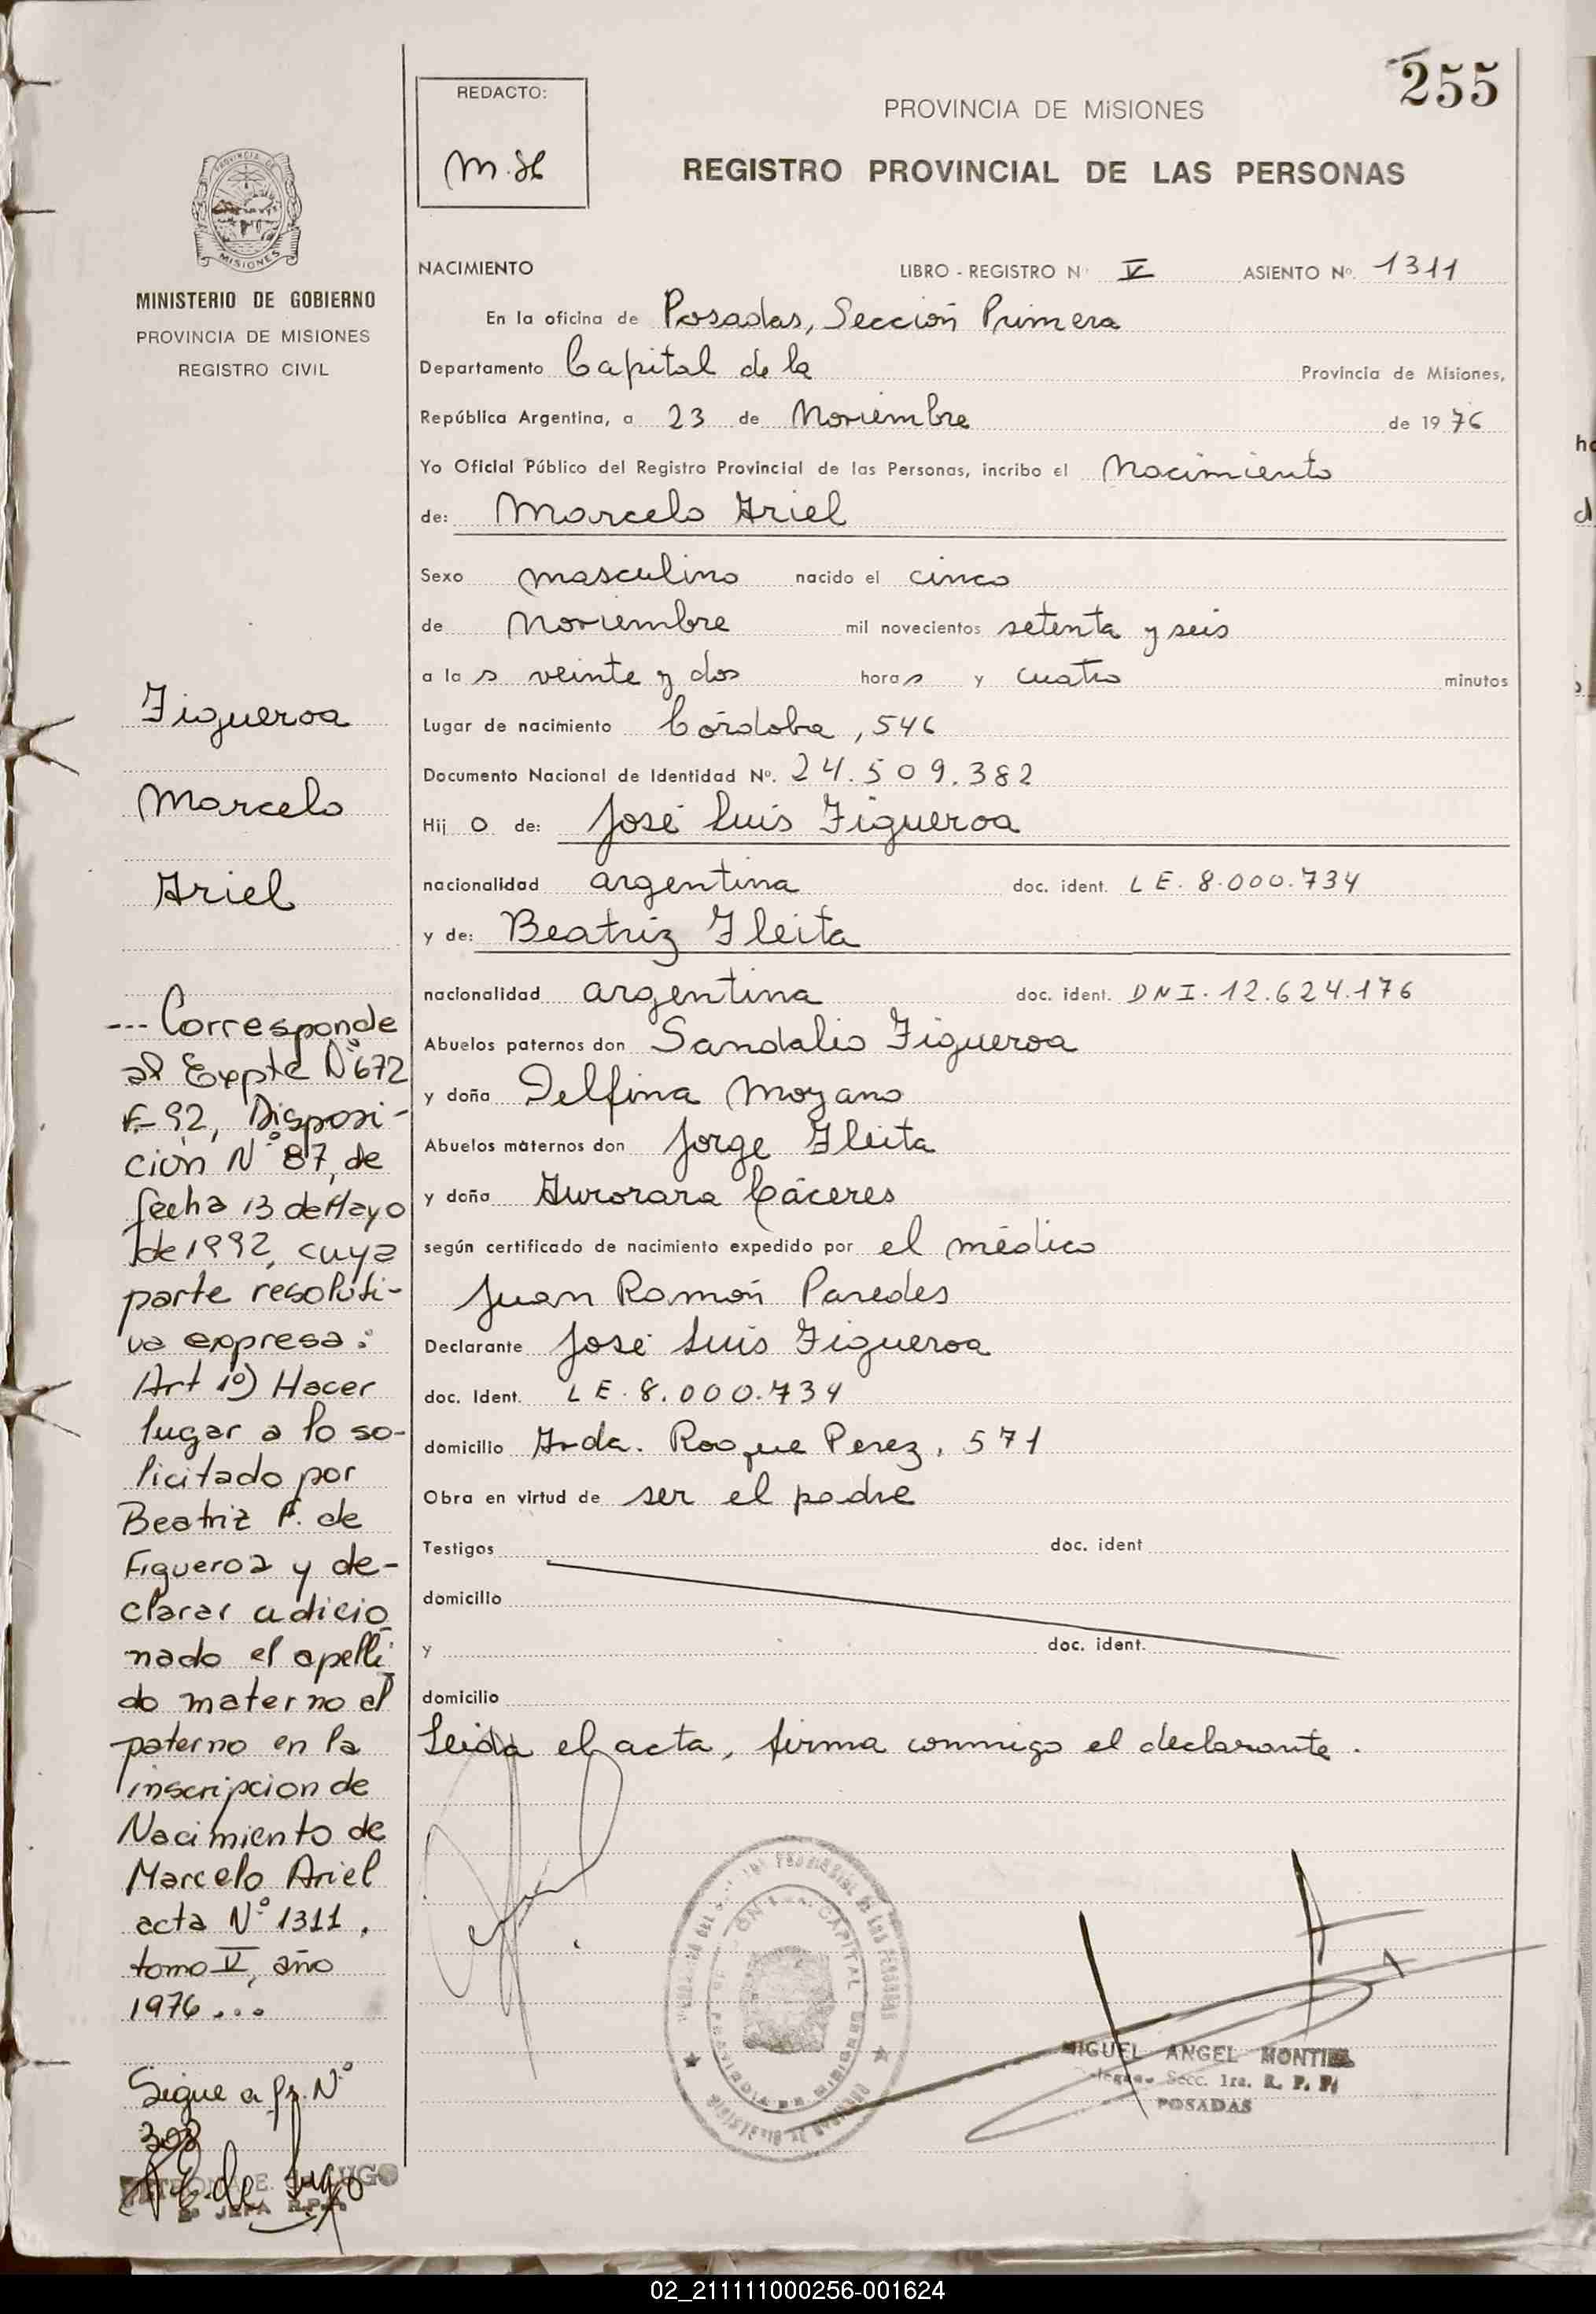 255
REDACTO:
M.H
PROVINCIA DE MISIONES
REGISTRO PROVINCIAL DE LAS PERSONAS
PROVINCIA DE
MISIONES
MINISTERIO DE GOBIERNO
PROVINCIA DE MISIONES
REGISTRO CIVIL
NACIMIENTO LIBRO - REGISTRO Nº V ASIENTO Nº. 1311
En la oficina de Posadas, Sección Primera
Departamento Capital de la Provincia de Misiones,
República Argentina, a 23 de Noviembre de 1976
Yo Oficial Público del Registro Provincial de las Personas, incribo el Nacimiento
de: Marcelo Ariel
Sexo masculino nacido el cinco
de Noviembre mil novecientos setenta y seis
a las veinte y dos horas y cuatro minutos
Lugar de nacimiento Córdoba, 546
Documento Nacional de Identidad Nº. 24.509.382
Hijo de: José Luis Figueroa
nacionalidad argentina doc. ident. L E. 8.000.734
y de: Beatriz Fleita
nacionalidad argentina doc. ident. DNI. 12.624.176
Abuelos paternos don Sandalio Figueroa
y doña Delfina Moyano
Abuelos maternos don Jorge Fleita
y doña Aurorara Cáceres
según certificado de nacimiento expedido por el médico
Juan Ramón Paredes
Declarante José Luis Figueroa
doc. Ident. L E. 8.000.734
domicilio Avda. Roque Perez, 571
Obra en virtud de ser el padre
Testigos doc. ident
domicilio
y doc. ident.
domicilio
Leida el acta, firma conmigo el declarante.
MIGUEL ANGEL MONTIEL
Secc. 1ra. R. P. P.
POSADAS
Figueroa
Marcelo
Ariel
--- Corresponde
al Expte Nº 672
F-92, Disposi-
ción Nº 87, de
fecha 13 de Mayo
de 1992, cuya
parte resoluti-
va expresa:
Art 1º) Hacer
lugar a lo so-
licitado por
Beatriz F. de
Figueroa y de-
clarar adicio
nado el apelli
do materno al
paterno en la
inscripcion de
Nacimiento de
Marcelo Ariel
acta Nº 1311,
tomo V, año
1976...
Sigue a fs. Nº
308
JEFA R.P.P.
02_211111000256-001624